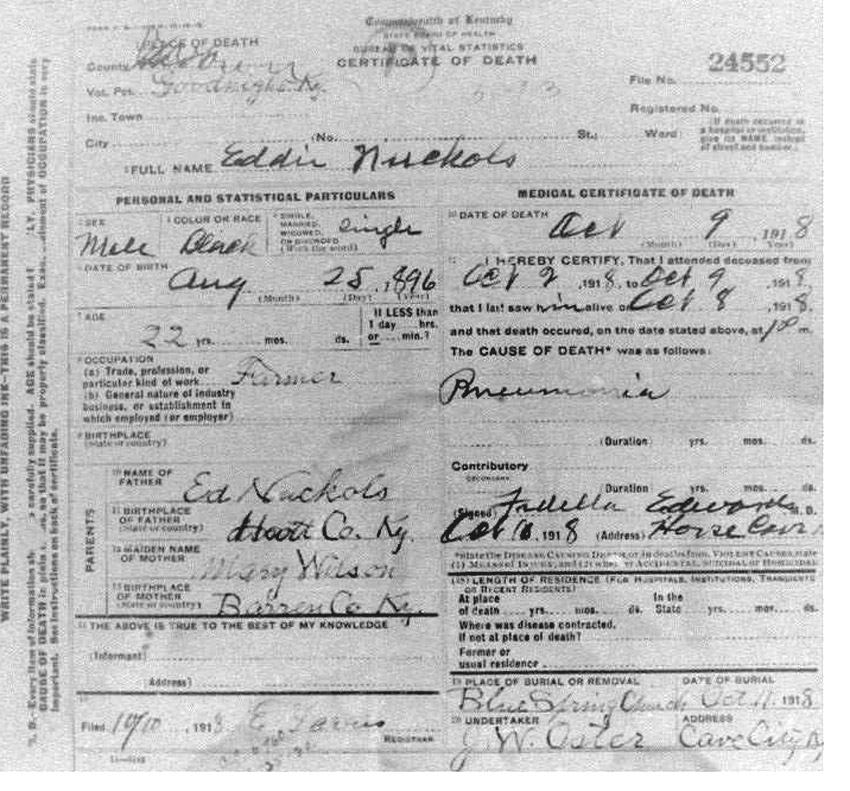 Commonwealth of Kentucky
STATE BOARD OF HEALTH
BUREAU OF VITAL STATISTICS
CERTIFICATE OF DEATH
PLACE OF DEATH
County
Vot. Pct. Goodnight Ky.
Inc. Town
City
(No. St.; Ward)
File No. 24552
Registered No.
(If death occurred in a hospital or institution, give its NAME instead of street and number.)
FULL NAME Eddie Nuckols
PERSONAL AND STATISTICAL PARTICULARS
SEX Male
COLOR OR RACE Black
SINGLE, MARRIED, WIDOWED, OR DIVORCED (Write the word) Single
DATE OF BIRTH Aug 25, 1896
(Month) (Day) (Year)
AGE 22 yrs. mos. ds.
If LESS than 1 day hrs. or min.?
OCCUPATION
(a) Trade, profession, or particular kind of work Farmer
(b) General nature of industry business, or establishment in which employed (or employer)
BIRTHPLACE
(State or country)
PARENTS
NAME OF FATHER Ed Nuckols
BIRTHPLACE OF FATHER (State or country) Co. Ky.
MAIDEN NAME OF MOTHER Mary Wilson
BIRTHPLACE OF MOTHER (State or country) Barren Co Ky.
THE ABOVE IS TRUE TO THE BEST OF MY KNOWLEDGE
(Informant)
(Address)
Filed 10/10, 1918 E REGISTRAR
MEDICAL CERTIFICATE OF DEATH
DATE OF DEATH Oct 9 1918
(Month) (Day) (Year)
I HEREBY CERTIFY, That I attended deceased from
Oct 2, 1918, to Oct 9, 1918,
that I last saw him alive on Oct 8, 1918,
and that death occured, on the date stated above, at m.
The CAUSE OF DEATH* was as follows:
Pneumonia
(Duration) yrs. mos. ds.
Contributory
SECONDARY
(Duration) yrs. mos. ds.
(Signed) Edwards M.D.
Oct 10, 1918 (Address) Horse Cave
*State the DISEASE CAUSING DEATH, or in deaths from VIOLENT CAUSES, state
(1) MEANS OF INJURY; and (2) whether ACCIDENTAL, SUICIDAL or HOMICIDAL
LENGTH OF RESIDENCE (FOR HOSPITALS, INSTITUTIONS, TRANSIENTS OR RECENT RESIDENTS)
At place of death yrs. mos. ds.
In the State yrs. mos. ds.
Where was disease contracted, if not at place of death?
Former or usual residence
PLACE OF BURIAL OR REMOVAL Blue Spring Church
DATE OF BURIAL Oct 11, 1918
UNDERTAKER J. W. Oster
ADDRESS Cave City Ky
WRITE PLAINLY, WITH UNFADING INK—THIS IS A PERMANENT RECORD